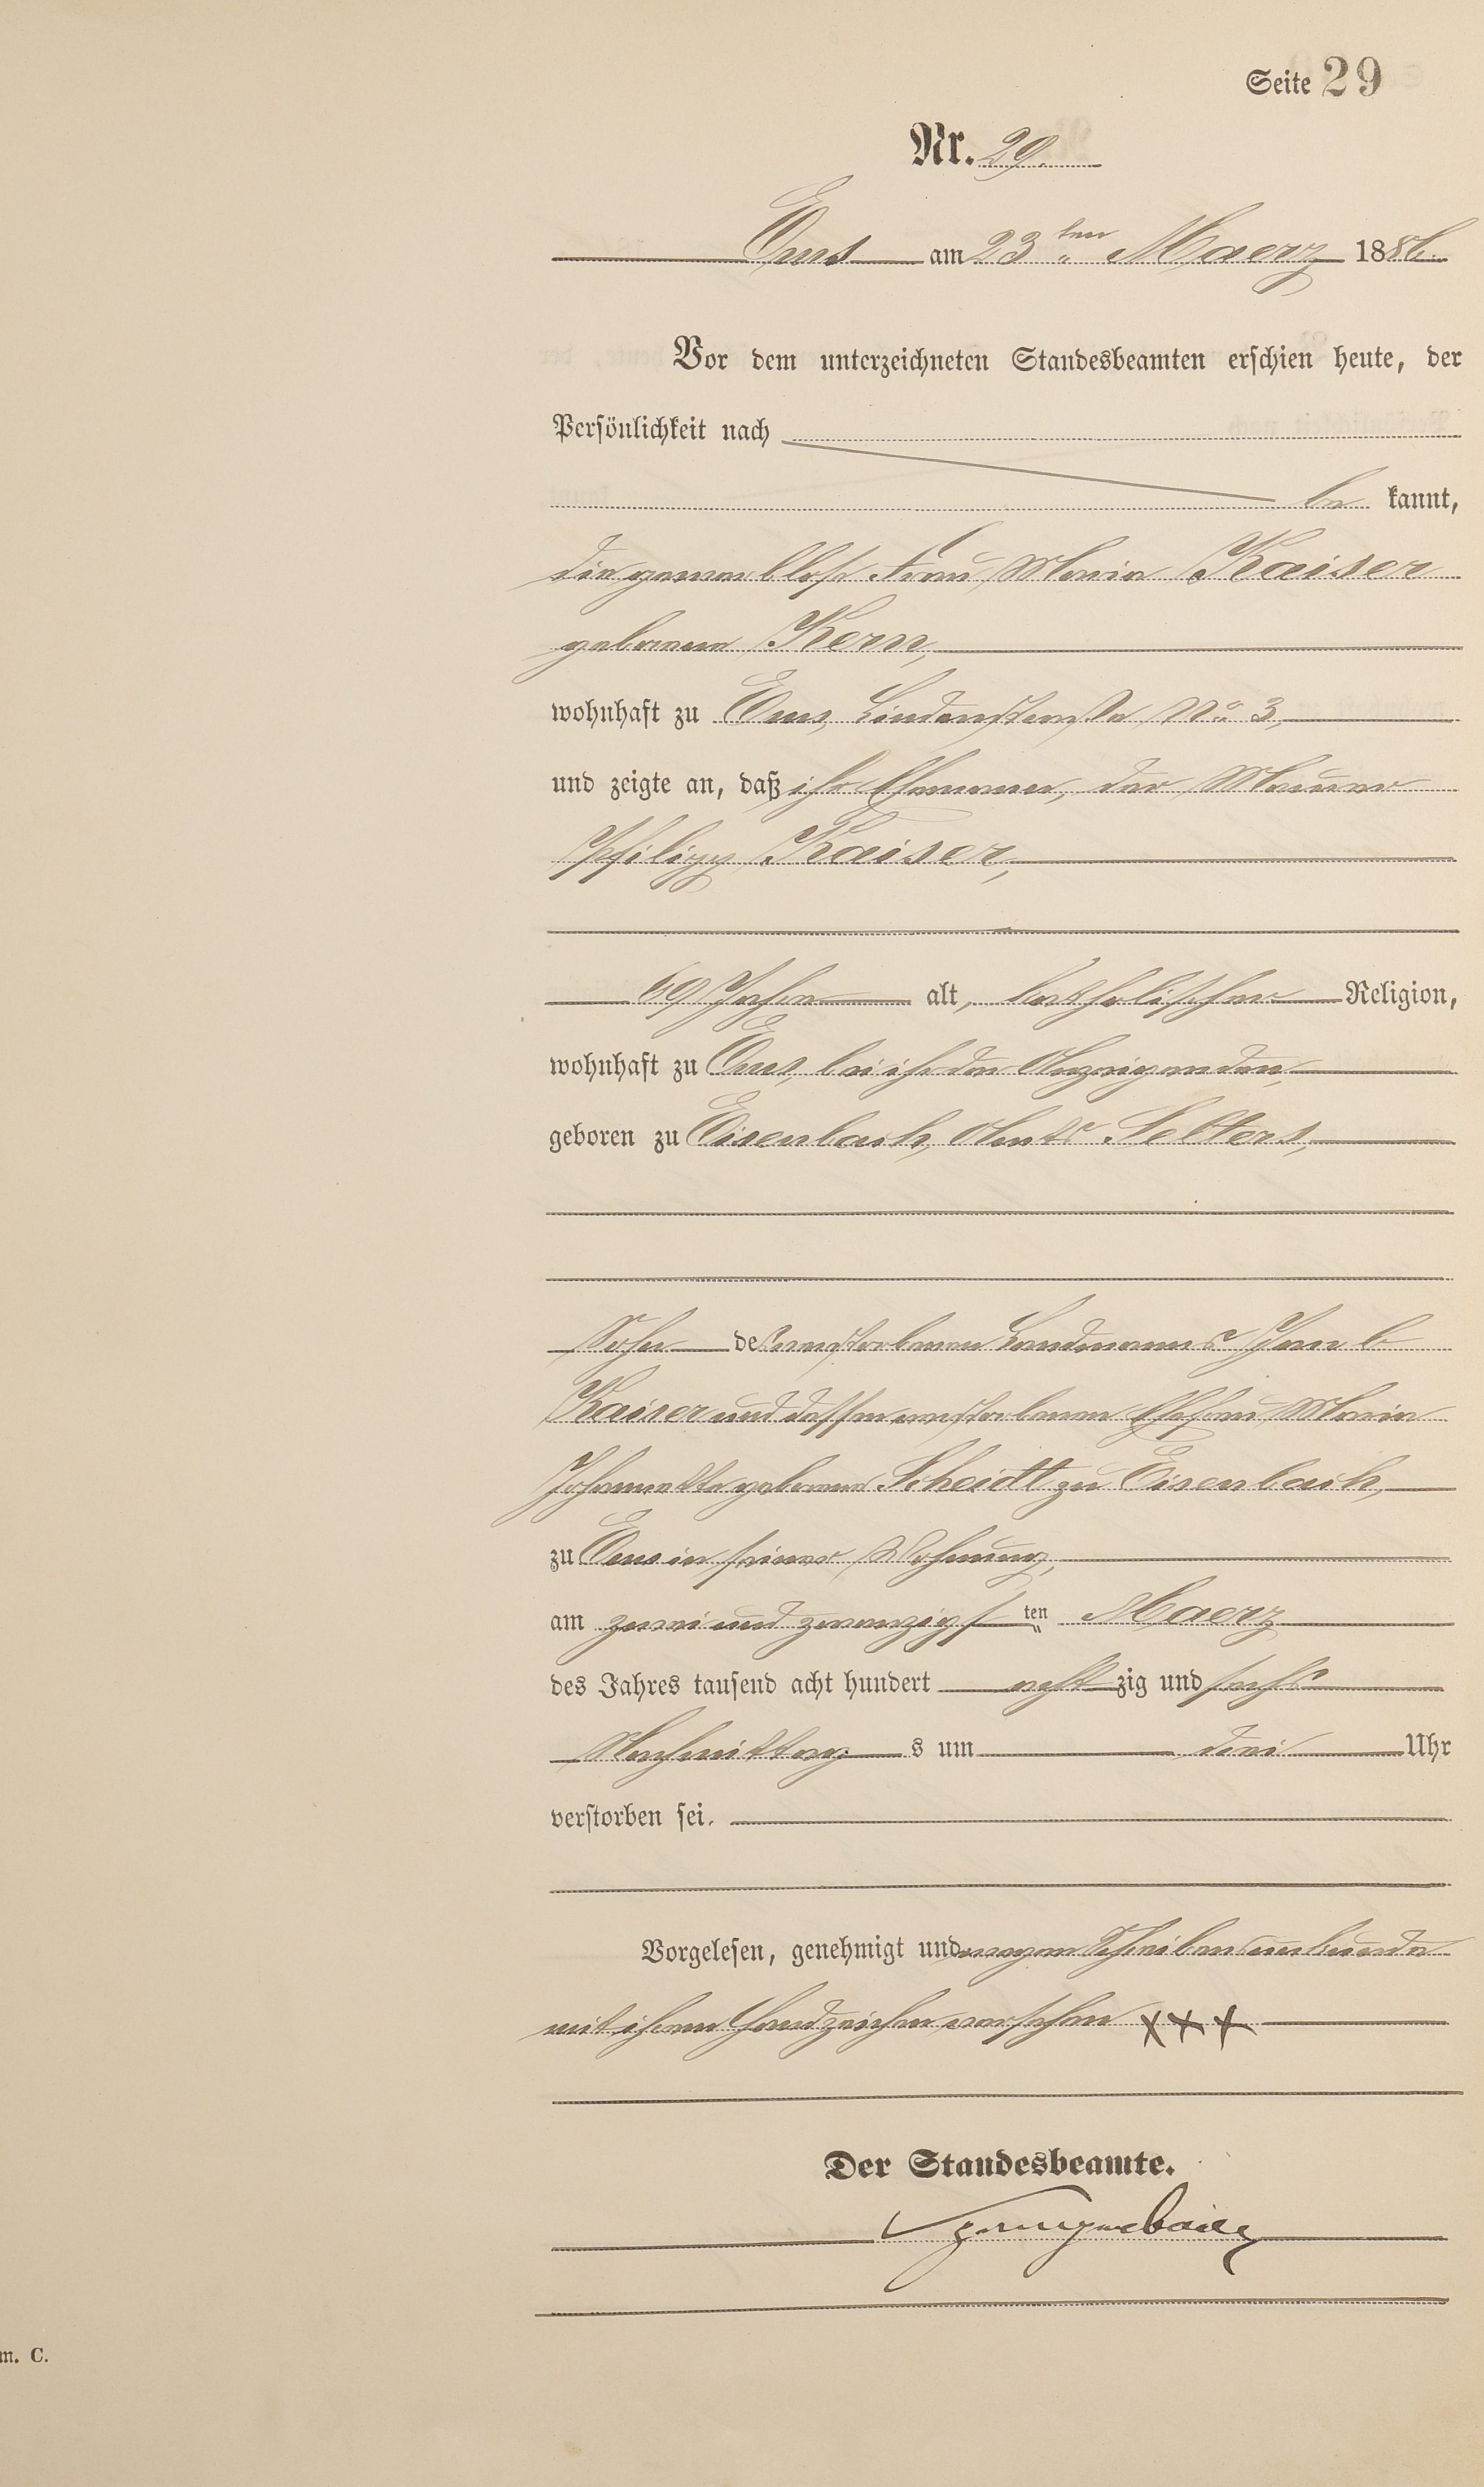 Seite 29
Nr. 29.
Ems am 23ten Maerz 1886.
Vor dem unterzeichneten Standesbeamten erschien heute, der
Persönlichkeit nach
be kannt,
die gewerblose Frau Maria Kaiser
geborene Kern,
wohnhaft zu Ems, Lindenstraße No 3,
und zeigte an, daß ihr Ehemann, der Maurer
Philipp Kaiser,
69 Jahre alt, katholischer Religion,
wohnhaft zu Ems, bei ihr der Anzeigenden,
geboren zu Eisenbach, Amts Selters,
Sohn des verstorbenen Landmanns Jacob
Kaiser und dessen verstorbenen Ehefrau Maria
Johannetta geborene Scheidt zu Eisenbach,
zu Ems in seiner Wohnung,
am zwei und zwanzigsten Maerz
des Jahres tausend acht hundert acht zig und sechs
Nachmittag s um drei Uhr
verstorben sei.
Vorgelesen, genehmigt und wegen Schreibensunkunde
mit ihrem Handzeichen versehen XXX
Der Standesbeamte.
m. C.